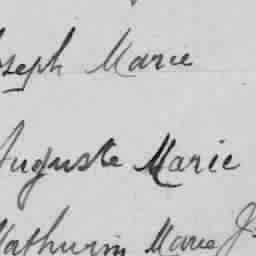 oseph Marie
Auguste Marie
Mathurin Marie J